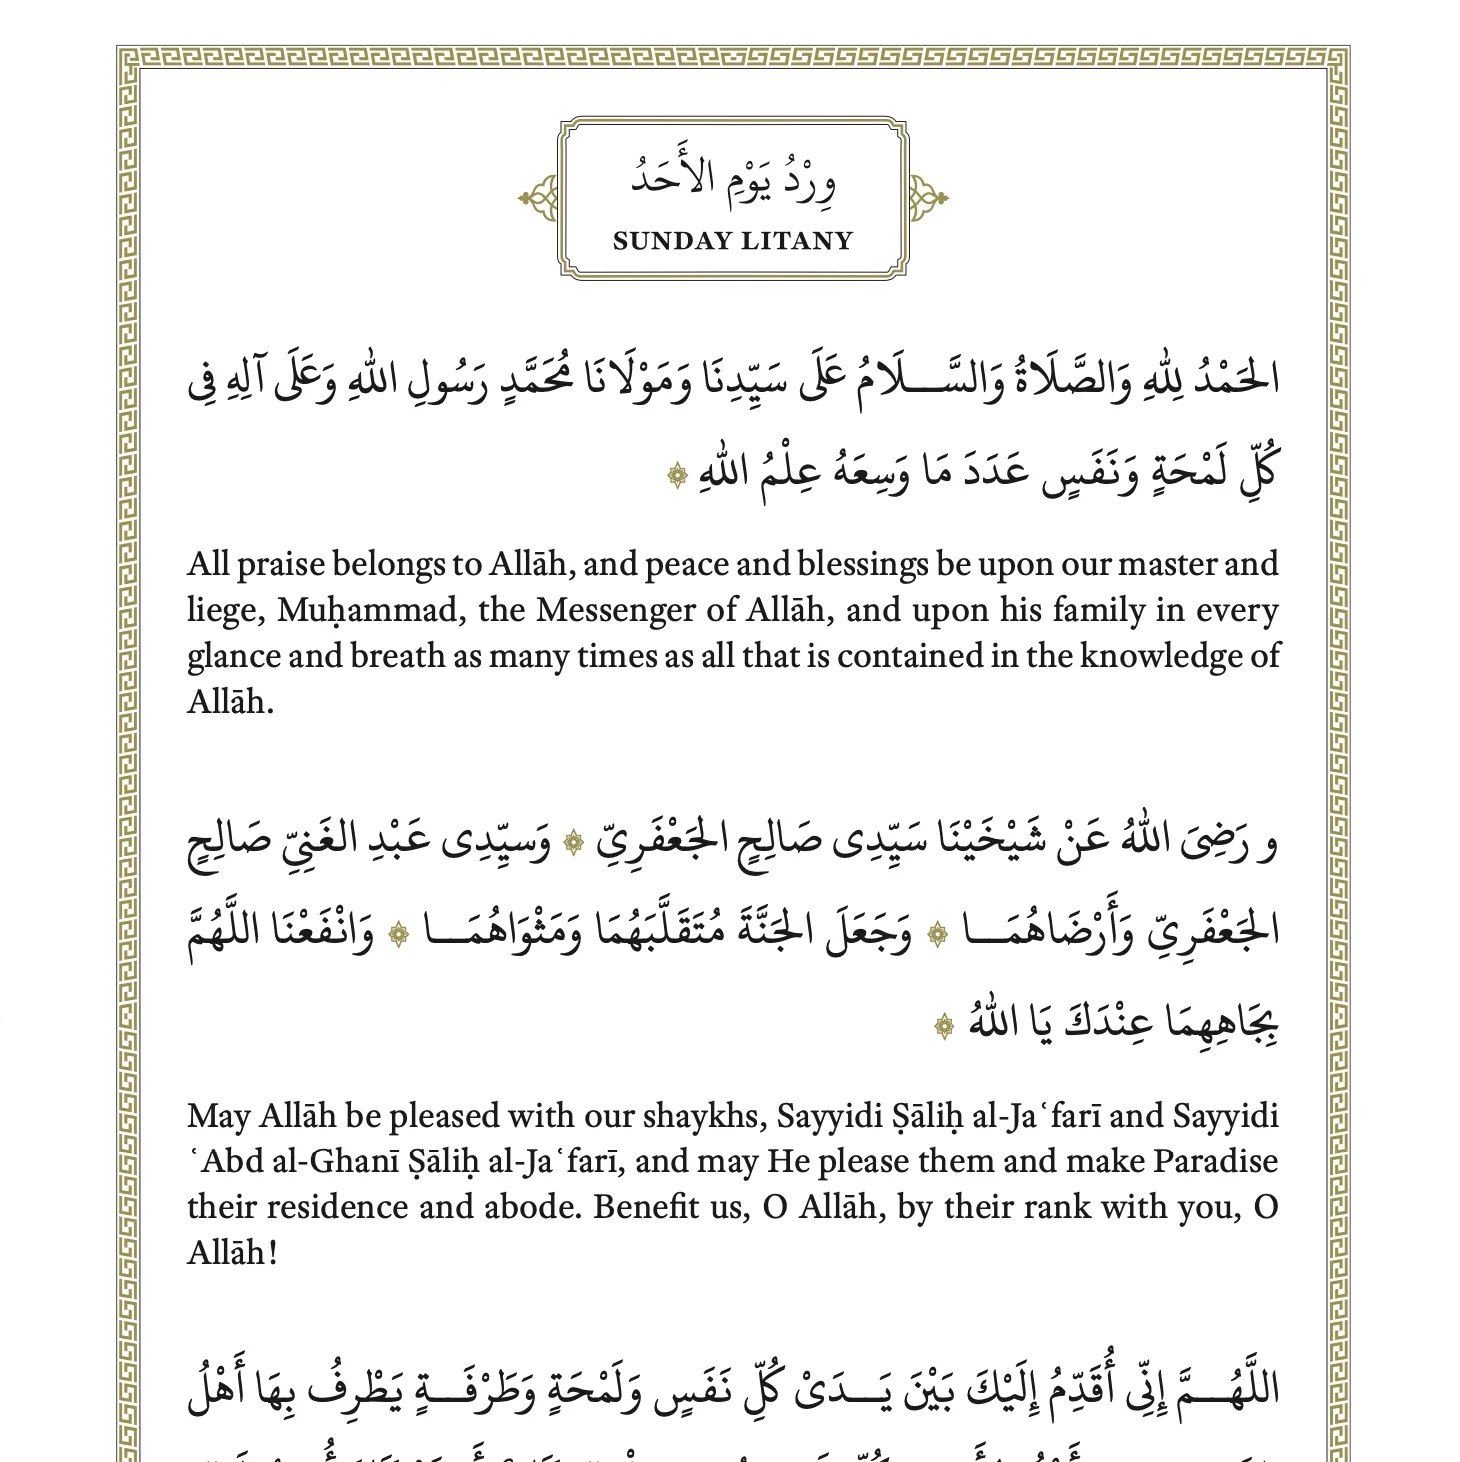 وِرْدُ يَوْمِ الأَحَدُ
SUNDAY LITANY
الحَمْدُ لِلّٰهِ وَالصَّلَاةُ وَالسَّـــلَامُ عَلَى سَيِّدِنَا وَمَوْلَانَا مُحَمَّدٍ رَسُولِ اللّٰهِ وَعَلَى آلِهِ فِى
كُلِّ لَمْحَةٍ وَنَفَسٍ عَدَدَ مَا وَسِعَهُ عِلْمُ اللّٰهِ ۞
All praise belongs to Allāh, and peace and blessings be upon our master and
liege, Muḥammad, the Messenger of Allāh, and upon his family in every
glance and breath as many times as all that is contained in the knowledge of
Allāh.
و رَضِىَ اللّٰهُ عَنْ شَيْخَيْنَا سَيِّدِى صَالِحٍ الجَعْفَرِىِّ ۞ وَسيِّدِى عَبْدِ الغَنِىِّ صَالِحٍ
الجَعْفَرِىِّ وَأَرْضَاهُمَـــا ۞ وَجَعَلَ الجَنَّةَ مُتَقَلَّبَهُمَا وَمَثْوَاهُمَـــا ۞ وَانْفَعْنَا اللَّهُمَّ
بِجَاهِهِمَا عِنْدَكَ يَا اللّٰهُ ۞
May Allāh be pleased with our shaykhs, Sayyidi Ṣāliḥ al-Jaʿfarī and Sayyidi
ʿAbd al-Ghanī Ṣāliḥ al-Jaʿfarī, and may He please them and make Paradise
their residence and abode. Benefit us, O Allāh, by their rank with you, O
Allāh!
اللَّهُـــمَّ إِنِّى أُقَدِّمُ إِلَيْكَ بَيْنَ يَـــدَىْ كُلِّ نَفَسٍ وَلَمْحَةٍ وَطَرْفَـــةٍ يَطْرِفُ بِهَا أَهْلُ